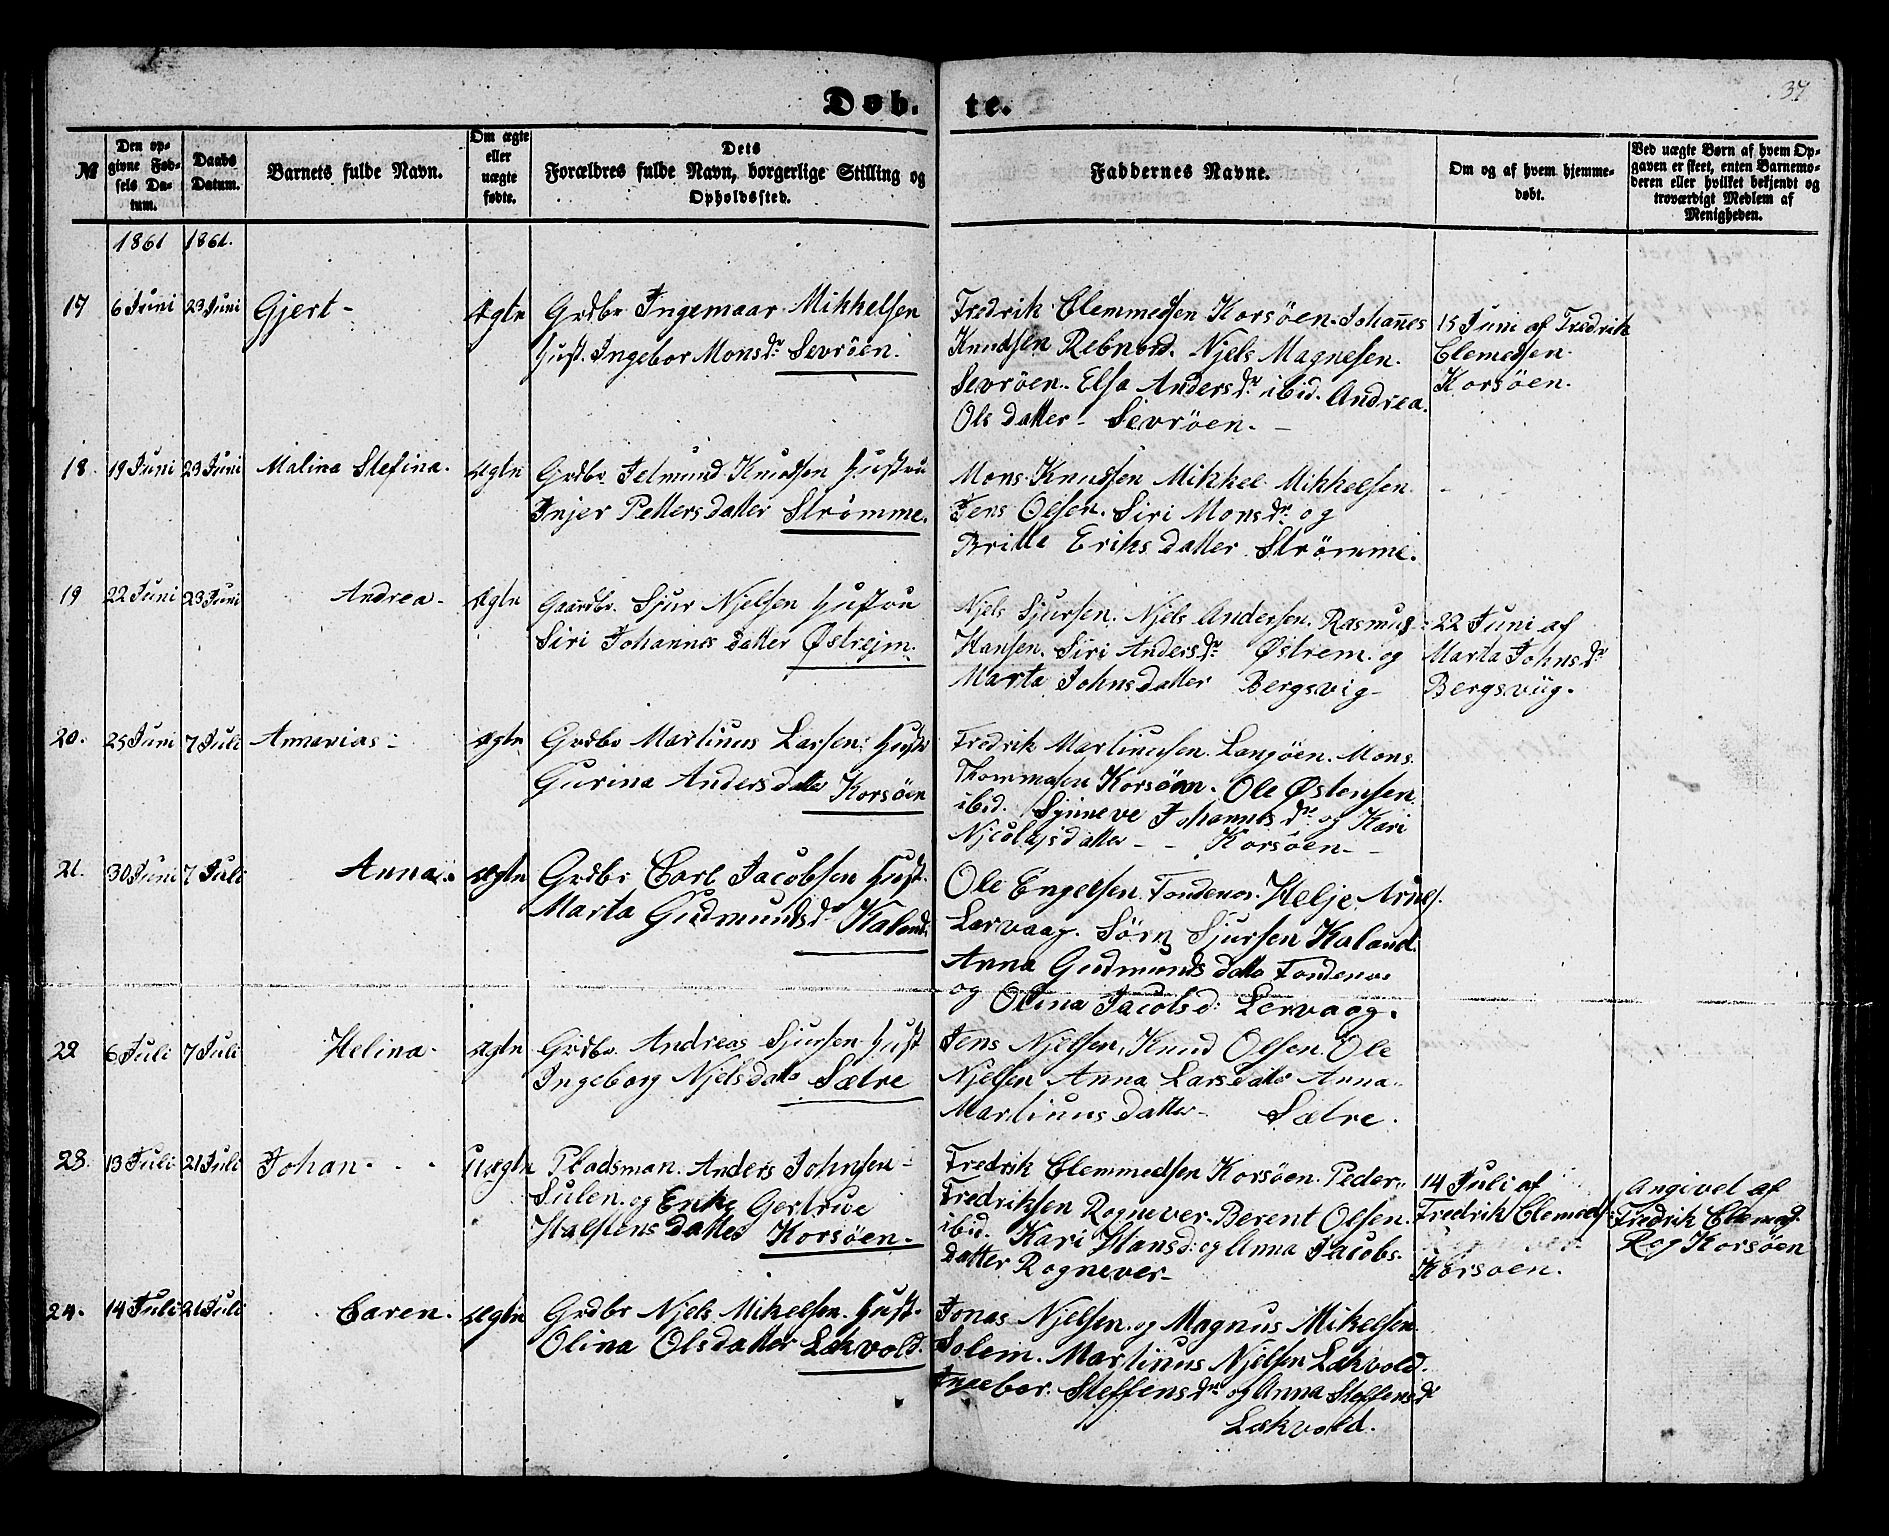 Døb-te.
37
№
Den op-
givne Fød-
sels Da-
tum.
Daabs
Datum.
Barnets fulde Navn.
Om ægte
eller
uægte
fødte.
Dets
Forældres fulde Navn, borgerlige Stilling og
Opholdssted.
Faddernes Navne.
Om og af hvem hjemme-
døbt.
Ved uægte Børn af hvem Op-
gaven er skeet, enten Barnemo-
deren eller hvilket bekjendt og
troværdigt Medlem af
Menigheden.
1861 1861.
17 6 Juni 23 Juni Gjert - Ægte
Grdbr Ingemaar Mikkelsen
Hust. Ingebor Monsdr. Sevröen.
Fredrik Clemmedsen Korsöen. Johañes
Knudsen Rebnord. Njels Magnesen.
Sevröen. Elsa Andersdr ibid. Andrea.
Ols datter - Sevröen. -
15 Juni af Fredrik
Clemedsen
Korsöen.
18. 19 Juni 23 Juni Malina Stefina. Ægte
Grdbr. Jetmund Knudsen Hustru
Injer Petters datter Strømme.
Mons Knudsen Mikkel Mikkelsen.
Jens Olsen. Siri Monsdr. og
Britte Eriks datter Strömme.
19 22 Juni 23 Juni Andrea - Ægte
Gaardbr. Sjur Njelsen Hustru
Siri Johannes datter Østrejm.
Njels Sjursen. Njels Andersen. Rasmus
Hansen. Siri Andersdr. Østrem. og
Marta Johnsdatter Bergsvig -
22 Juni af
Marta Johnsdr
Bergsviig.
20. 25 Juni 7 Juli Annanias - Ægte
Grdbr Martinus Larsen. Hustr
Gurina Anders datter Korsöen
Fredrik Martinussen. Langöen. Mons.
Thommasen Korsöen. Ole Østensen.
ibid. Synneve Johannes dr. og Kari
Njcolajsdatter - - Korsöen - -
21. 30 Juni 7 Juli Anna. Ægte
Grdbr Carl Jacobsen Hust.
Marta Gudmundsdr Kaland.
Ole Engelsen. Tondenes. Helje Arnes.
Lervaag. Sörn Sjursen Kaland.
Anna Gudmunds datter Tondenes
og Olina Jacobsd: Lervaag.
22 6 Juli 7 Juli Helina. Ægte
Grdbr. Andreas Sjursen Hust
Ingeborg Njelsdatter Sætre
Jens Njelsen, Knud Olsen. Ole
Njelsen Anna Larsdatter Anna.
Martinus datter - Sætre.
23. 13 Juli 21 Juli Johan - - - Uægte
Pladsman. Anders Johnsen -
Sulen. og Enke Gertrue
Halstens datter Korsöen -
Fredrik Clemmedsen Korsöen. Peder
Fredriksen Rognever. Berent Olsen.
ibid. Kari Hansd: og Anna Jacobs-
datter Rognever -
14 Juli af
Fredrik Clemeds:
Korsöen.
Angivet af
Fredrik Clemeds.
Rog Korsöen
24. 14 Juli 21 Juli Caren. Ægte
Grdbr Njels Mikelsen. Hust.
Olina Olsdatter Lekvold.
Jonas Njelsen. og Magnus Mikelsen.
Solem. Martinus Njelsen Lekvold.
Ingebor. Steffensdr og Anna Steffensdr
Lekvold.